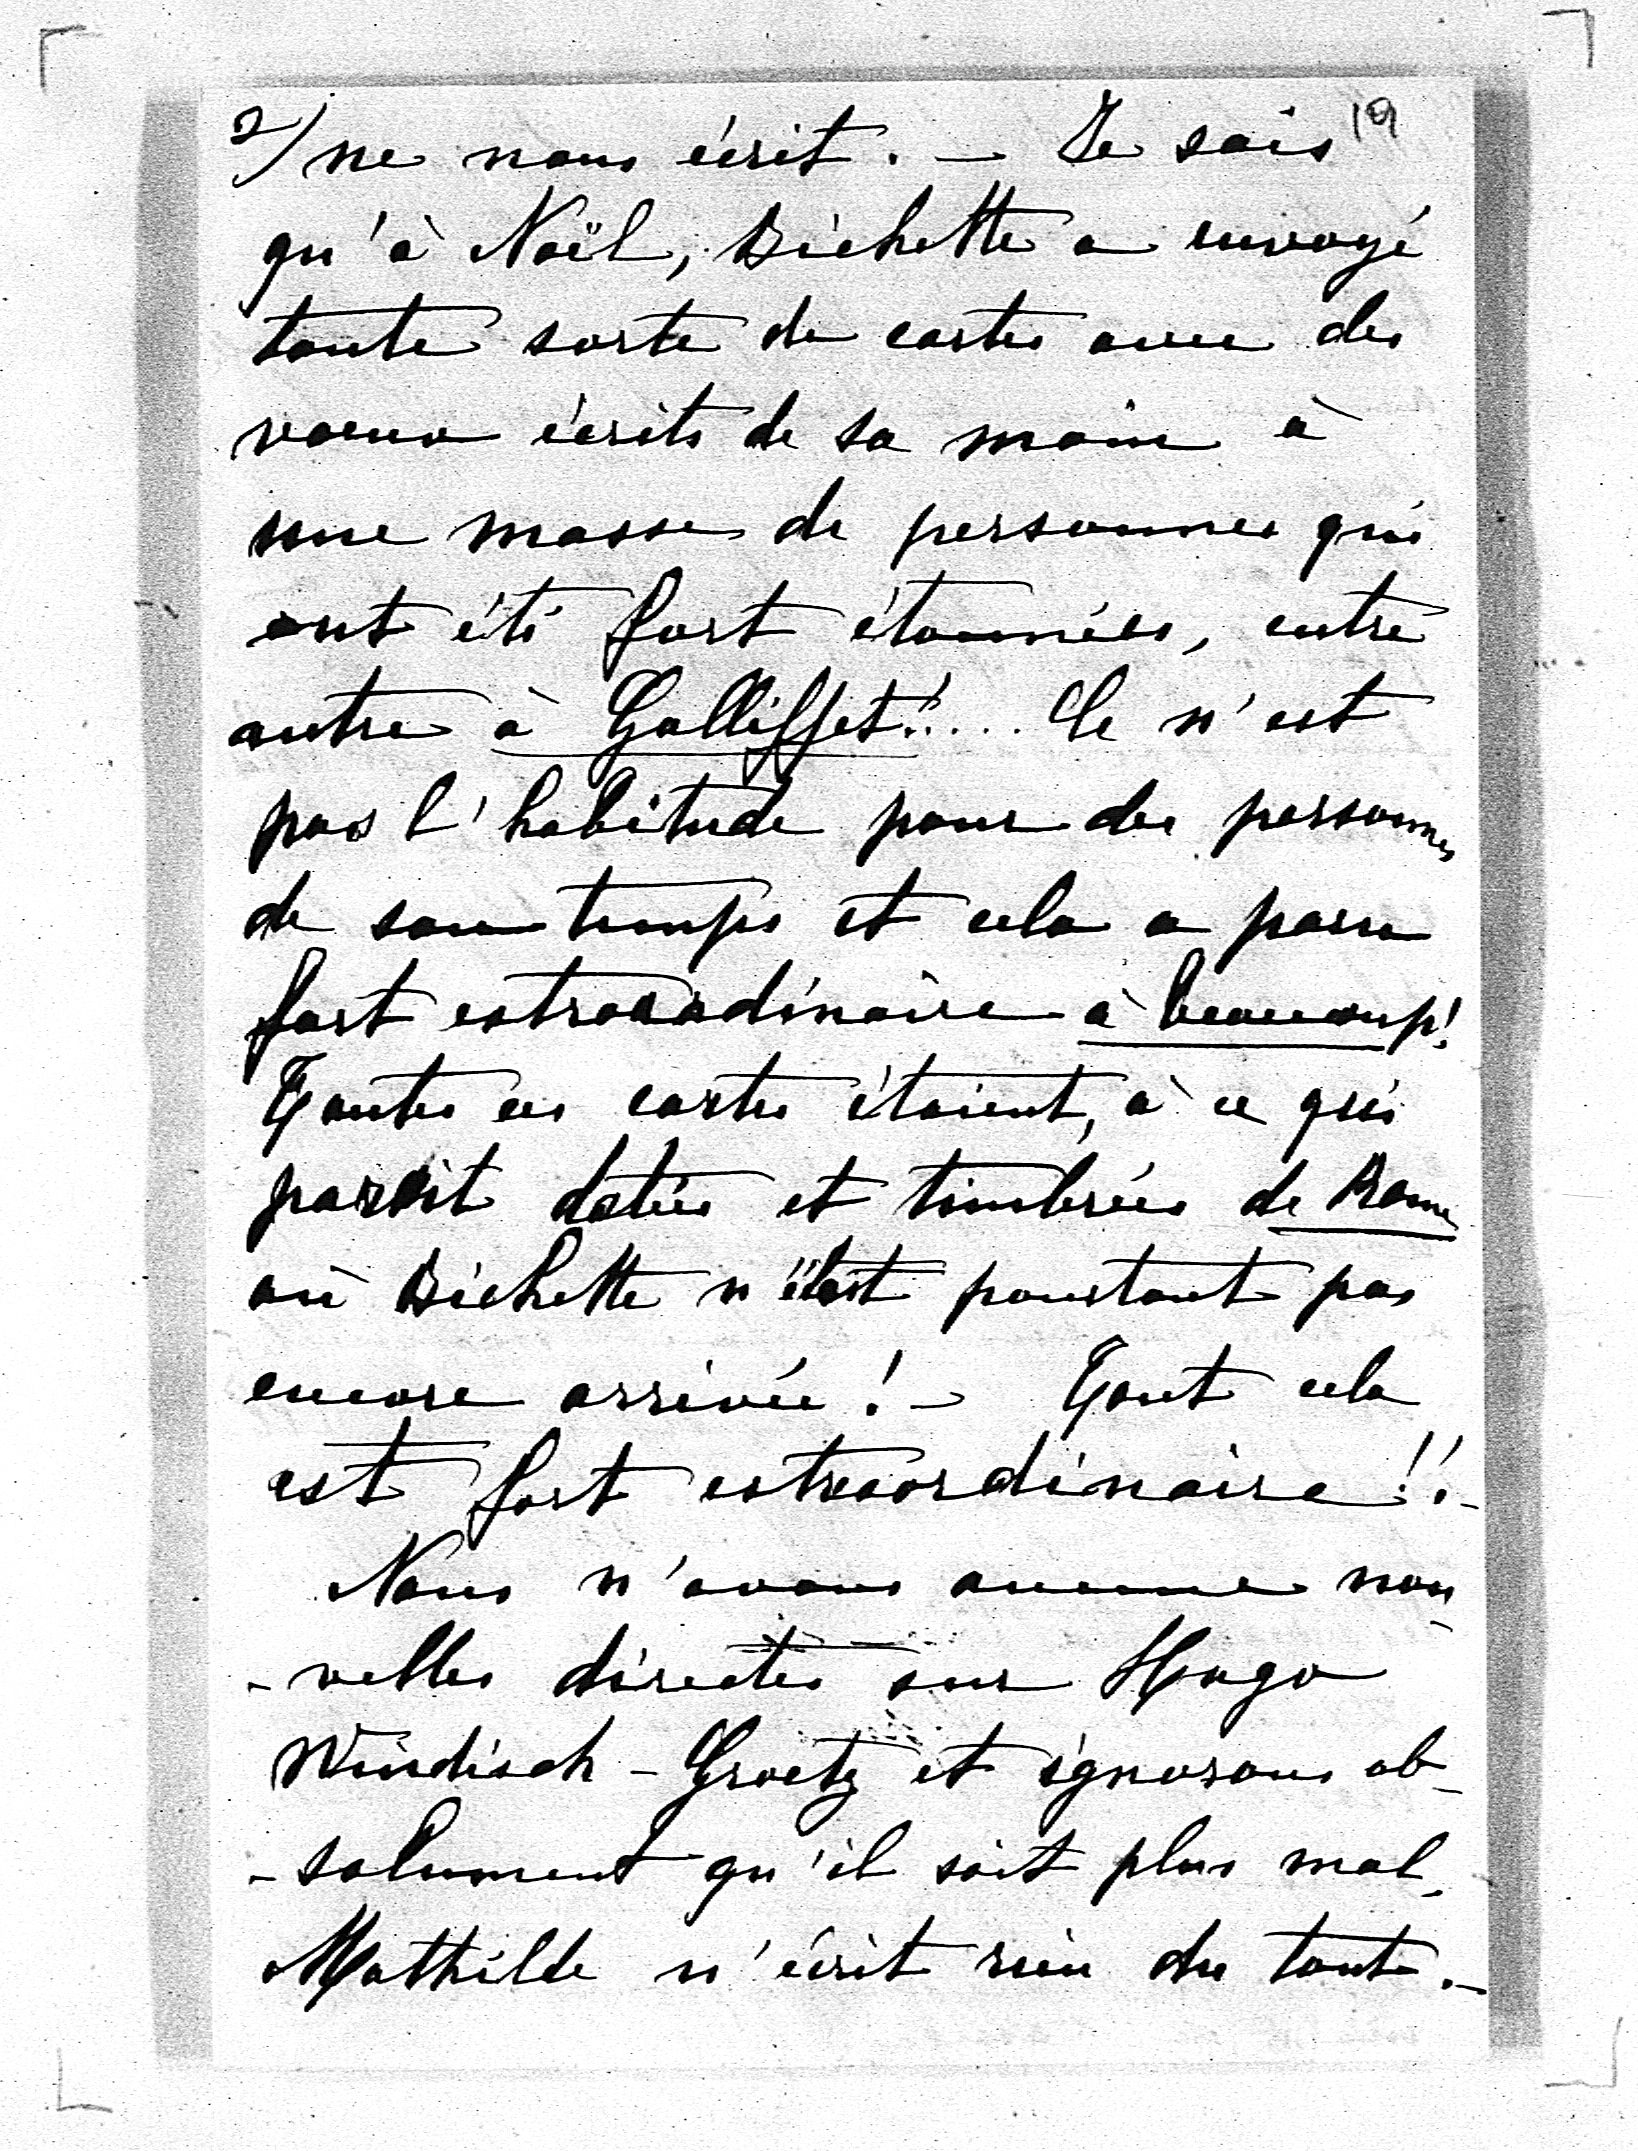 2/ ne nous écrit. — Je sais 19
qu'à Noël, Bichette a envoyé
toute sorte de cartes avec des
voeux écrits de sa main à
une masse de personnes qui
ont été fort étonnées, entre
autre à Galliffet!.... Ce n'est
pas l'habitude pour des personnes
de son temps et cela a paru
fort extraordinaire à beaucoup!
Toutes ces cartes étaient, à ce qui
paraît datées et timbrées de Rome
où Bichette n'est pourtant pas
encore arrivée! — Tout cela
est fort extraordinaire!! -
Nous n'avons aucune nou-
-velles directes sur Hugo
Windisch-Graetz et ignorons ab-
-solument qu'il soit plus mal,
Mathilde n'écrit rien du tout. —